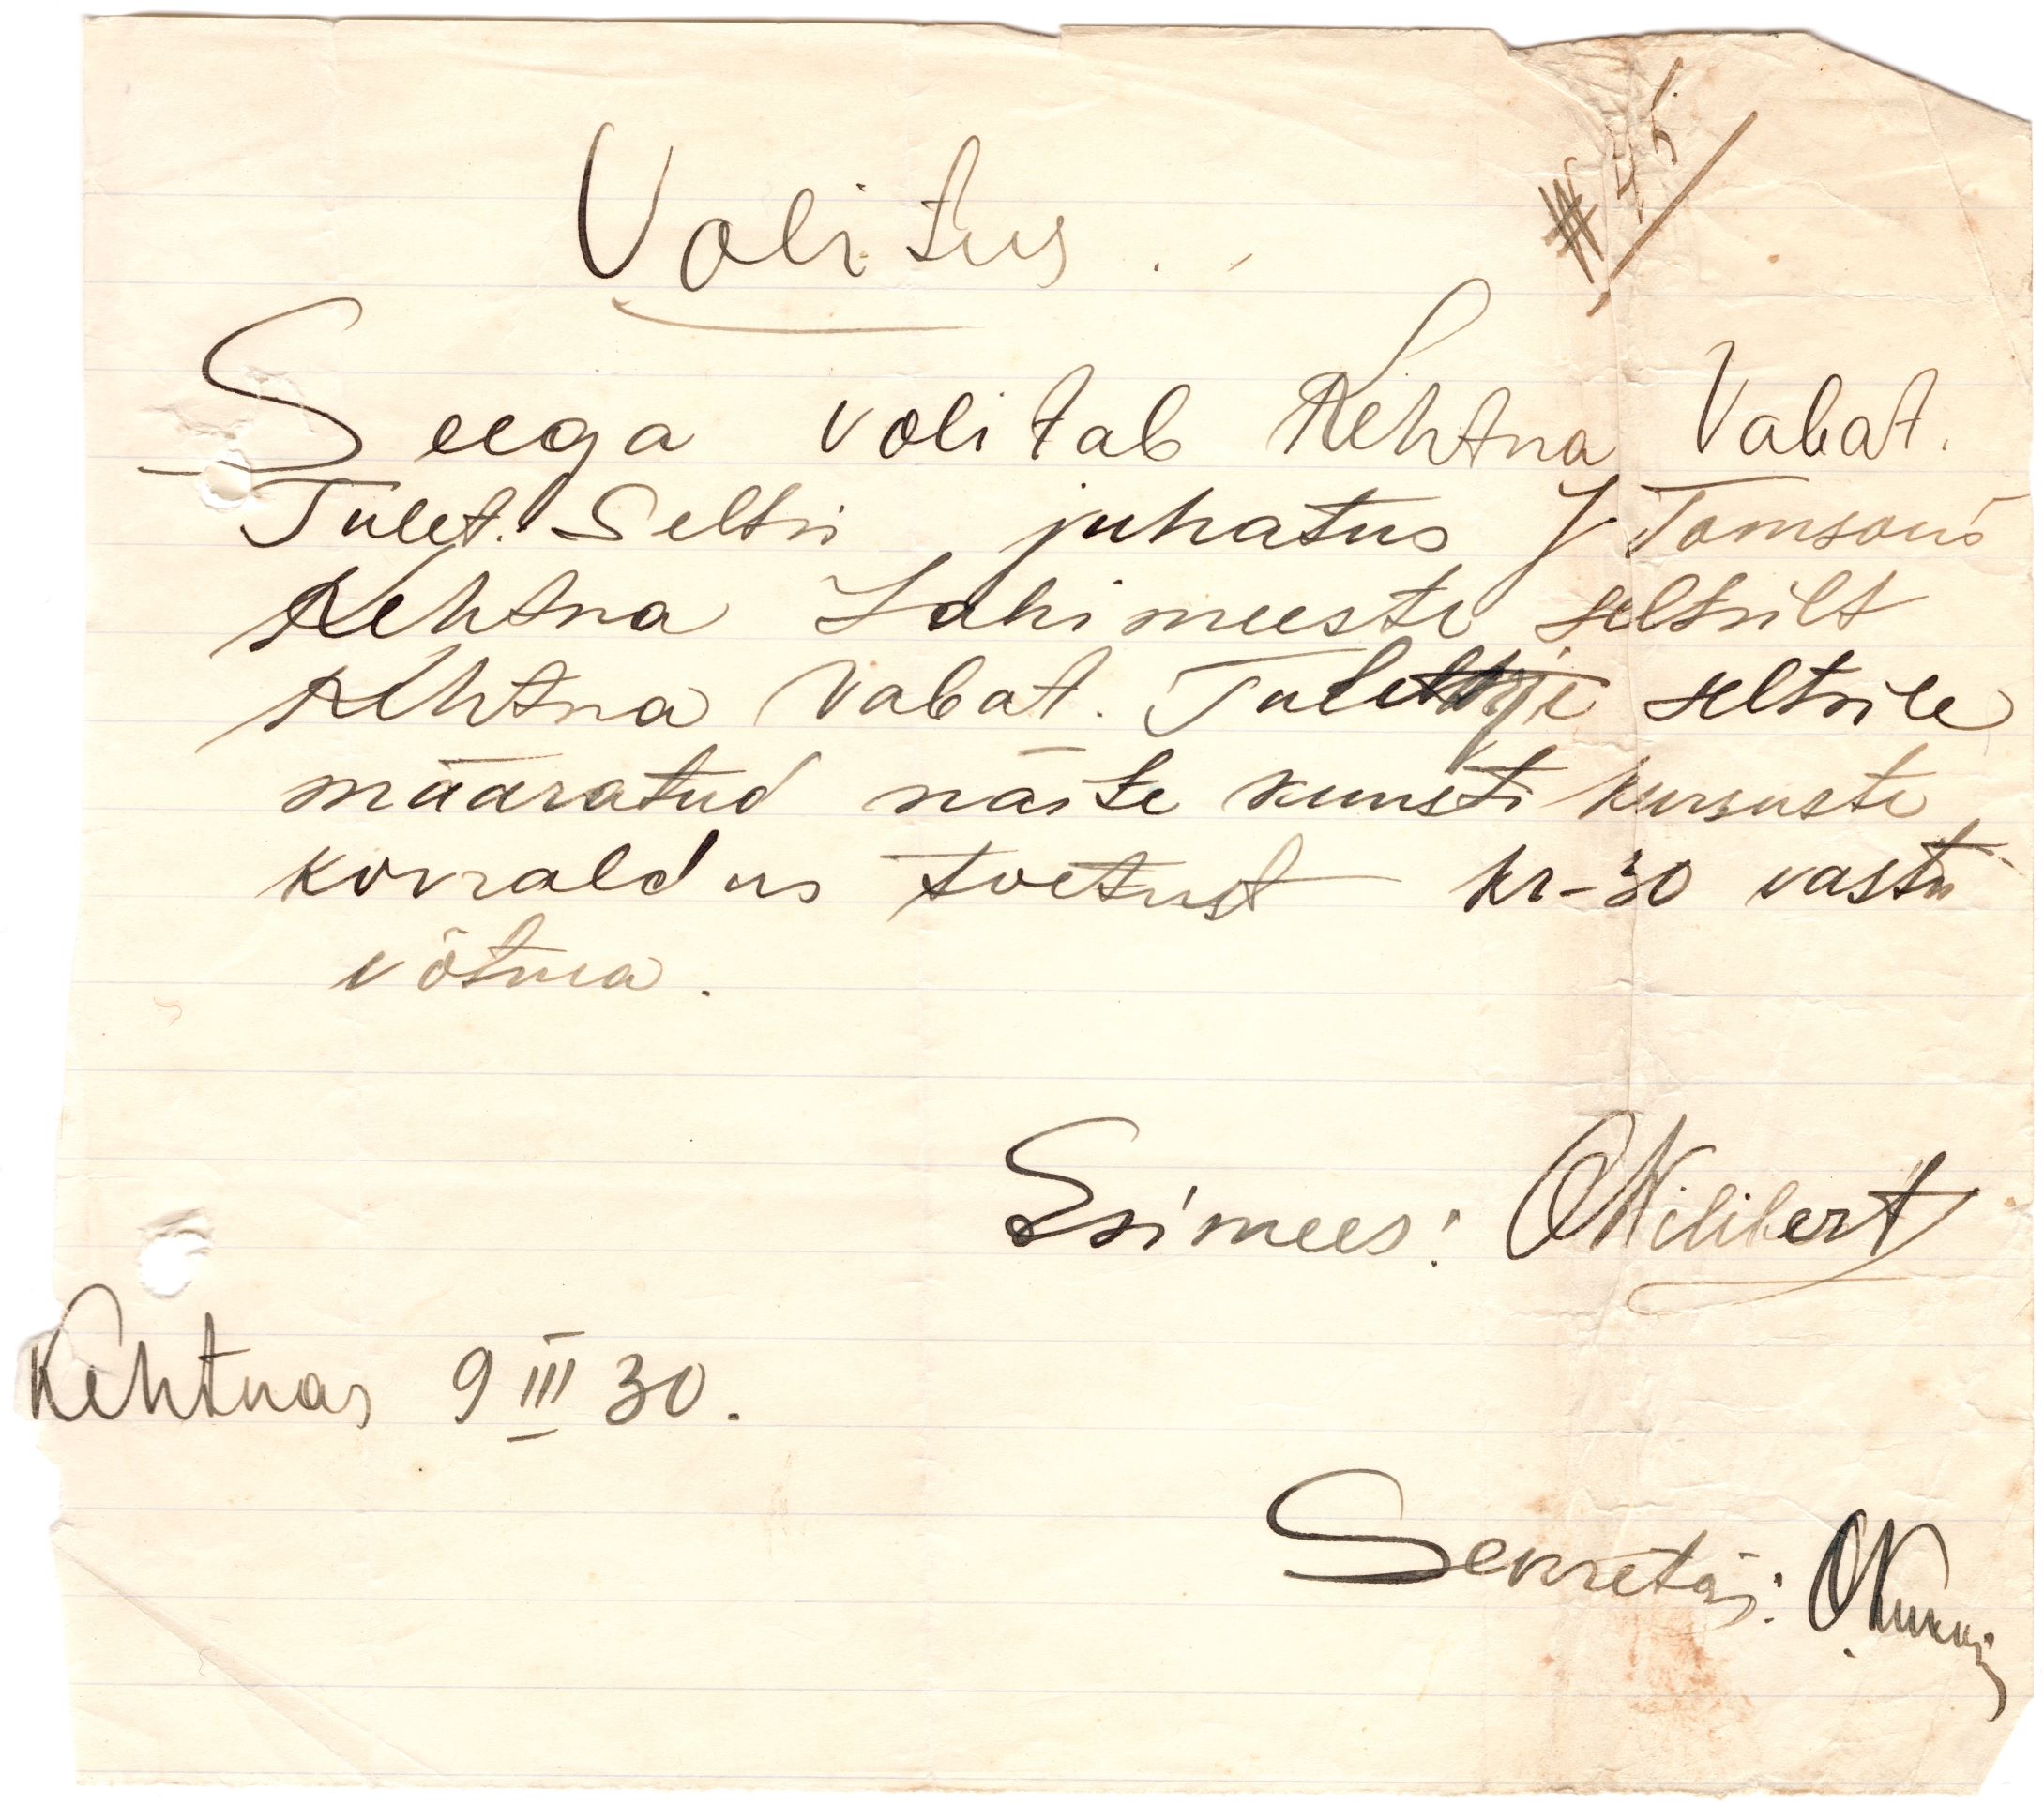 Volitus.
Seega volitab Kehtna Vabat.
Tulet. Seltsi juhatus J Tomson'i
Kehtna Lahimeeste seltsilt
Kehtna Vabat. Tuletõrje seltsile
määratud näite kunsti kursuste
korraldus toetust kr-30 vastu
võtma.
Esimees: O Hilibert
Kehtnas 9 III 30.
Sekretär: